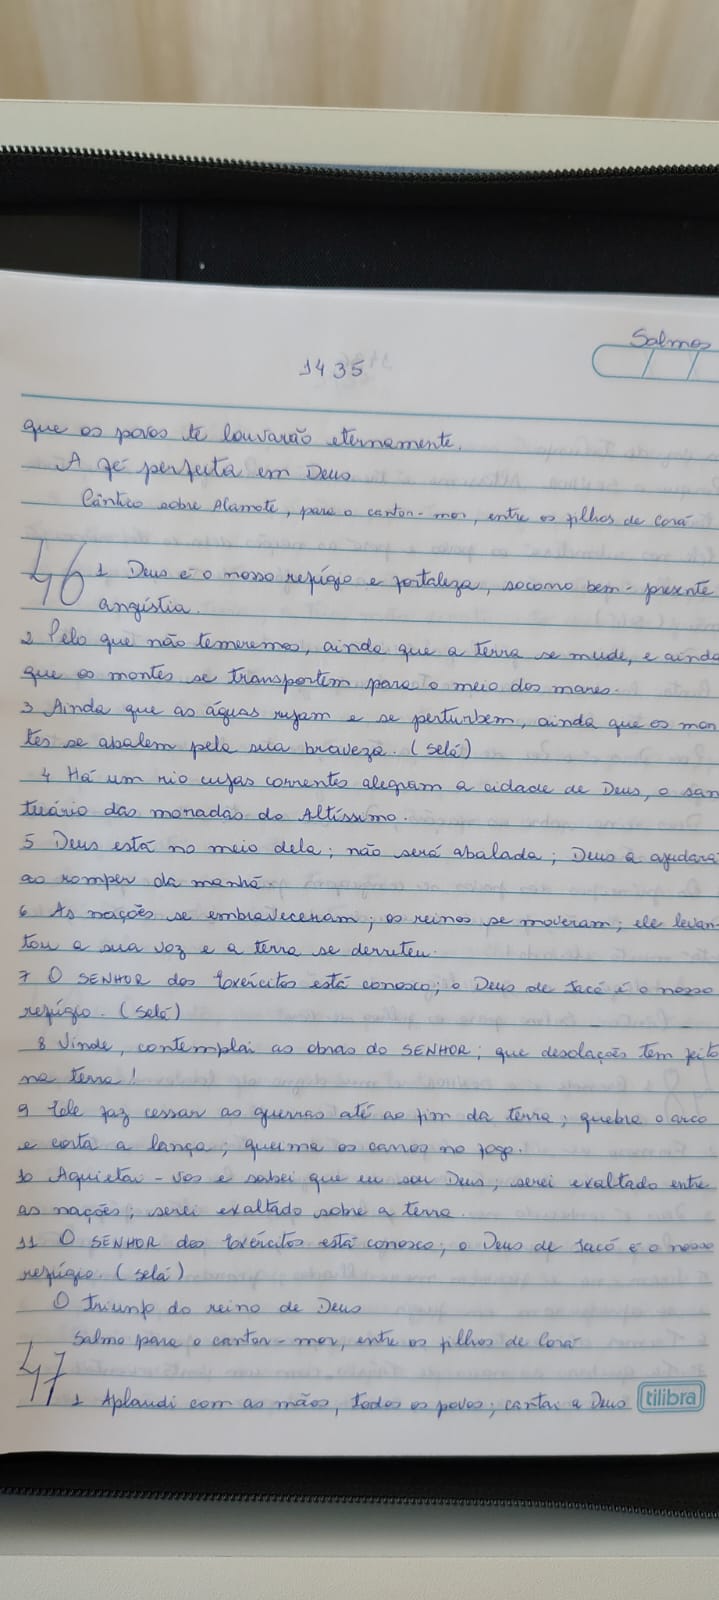 Salmos
1435
que os povos te louvarão eternamente.
A fé perfeita em Deus
Cântico sobre Alamote, para o cantor-mor, entre os filhos de Corá
46
1 Deus é o nosso refúgio e fortaleza, socorro bem-presente
angústia.
2 Pelo que não temeremos, ainda que a terra se mude, e ainda
que os montes se transportem para o meio dos mares.
3 Ainda que as águas rujam e se perturbem, ainda que os mon
tes se abalem pela sua braveza. (Selá)
4 Há um rio cujas correntes alegram a cidade de Deus, o san
tuário das moradas do Altíssimo.
5 Deus está no meio dela; não será abalada; Deus a ajudará
ao romper da manhã.
6 As nações se embraveceram; os reinos se moveram; ele levan-
tou a sua voz e a terra se derreteu.
7 O SENHOR dos Exércitos está conosco; o Deus de Jacó é o nosso
refúgio. (Selá)
8 Vinde, contemplai as obras do SENHOR; que desolações tem feito
na terra!
9 Ele faz cessar as guerras até ao fim da terra; quebra o arco
e corta a lança; queima os carros no fogo.
10 Aquietai-vos e sabei que eu sou Deus; serei exaltado entre
as nações; serei exaltado sobre a terra.
11 O SENHOR dos Exércitos está conosco; o Deus de Jacó é o nosso
refúgio. (Selá)
O triunfo do reino de Deus
Salmo para o cantor-mor, entre os filhos de Corá
47
1 Aplaudi com as mãos, todos os povos; cantai a Deus
tilibra